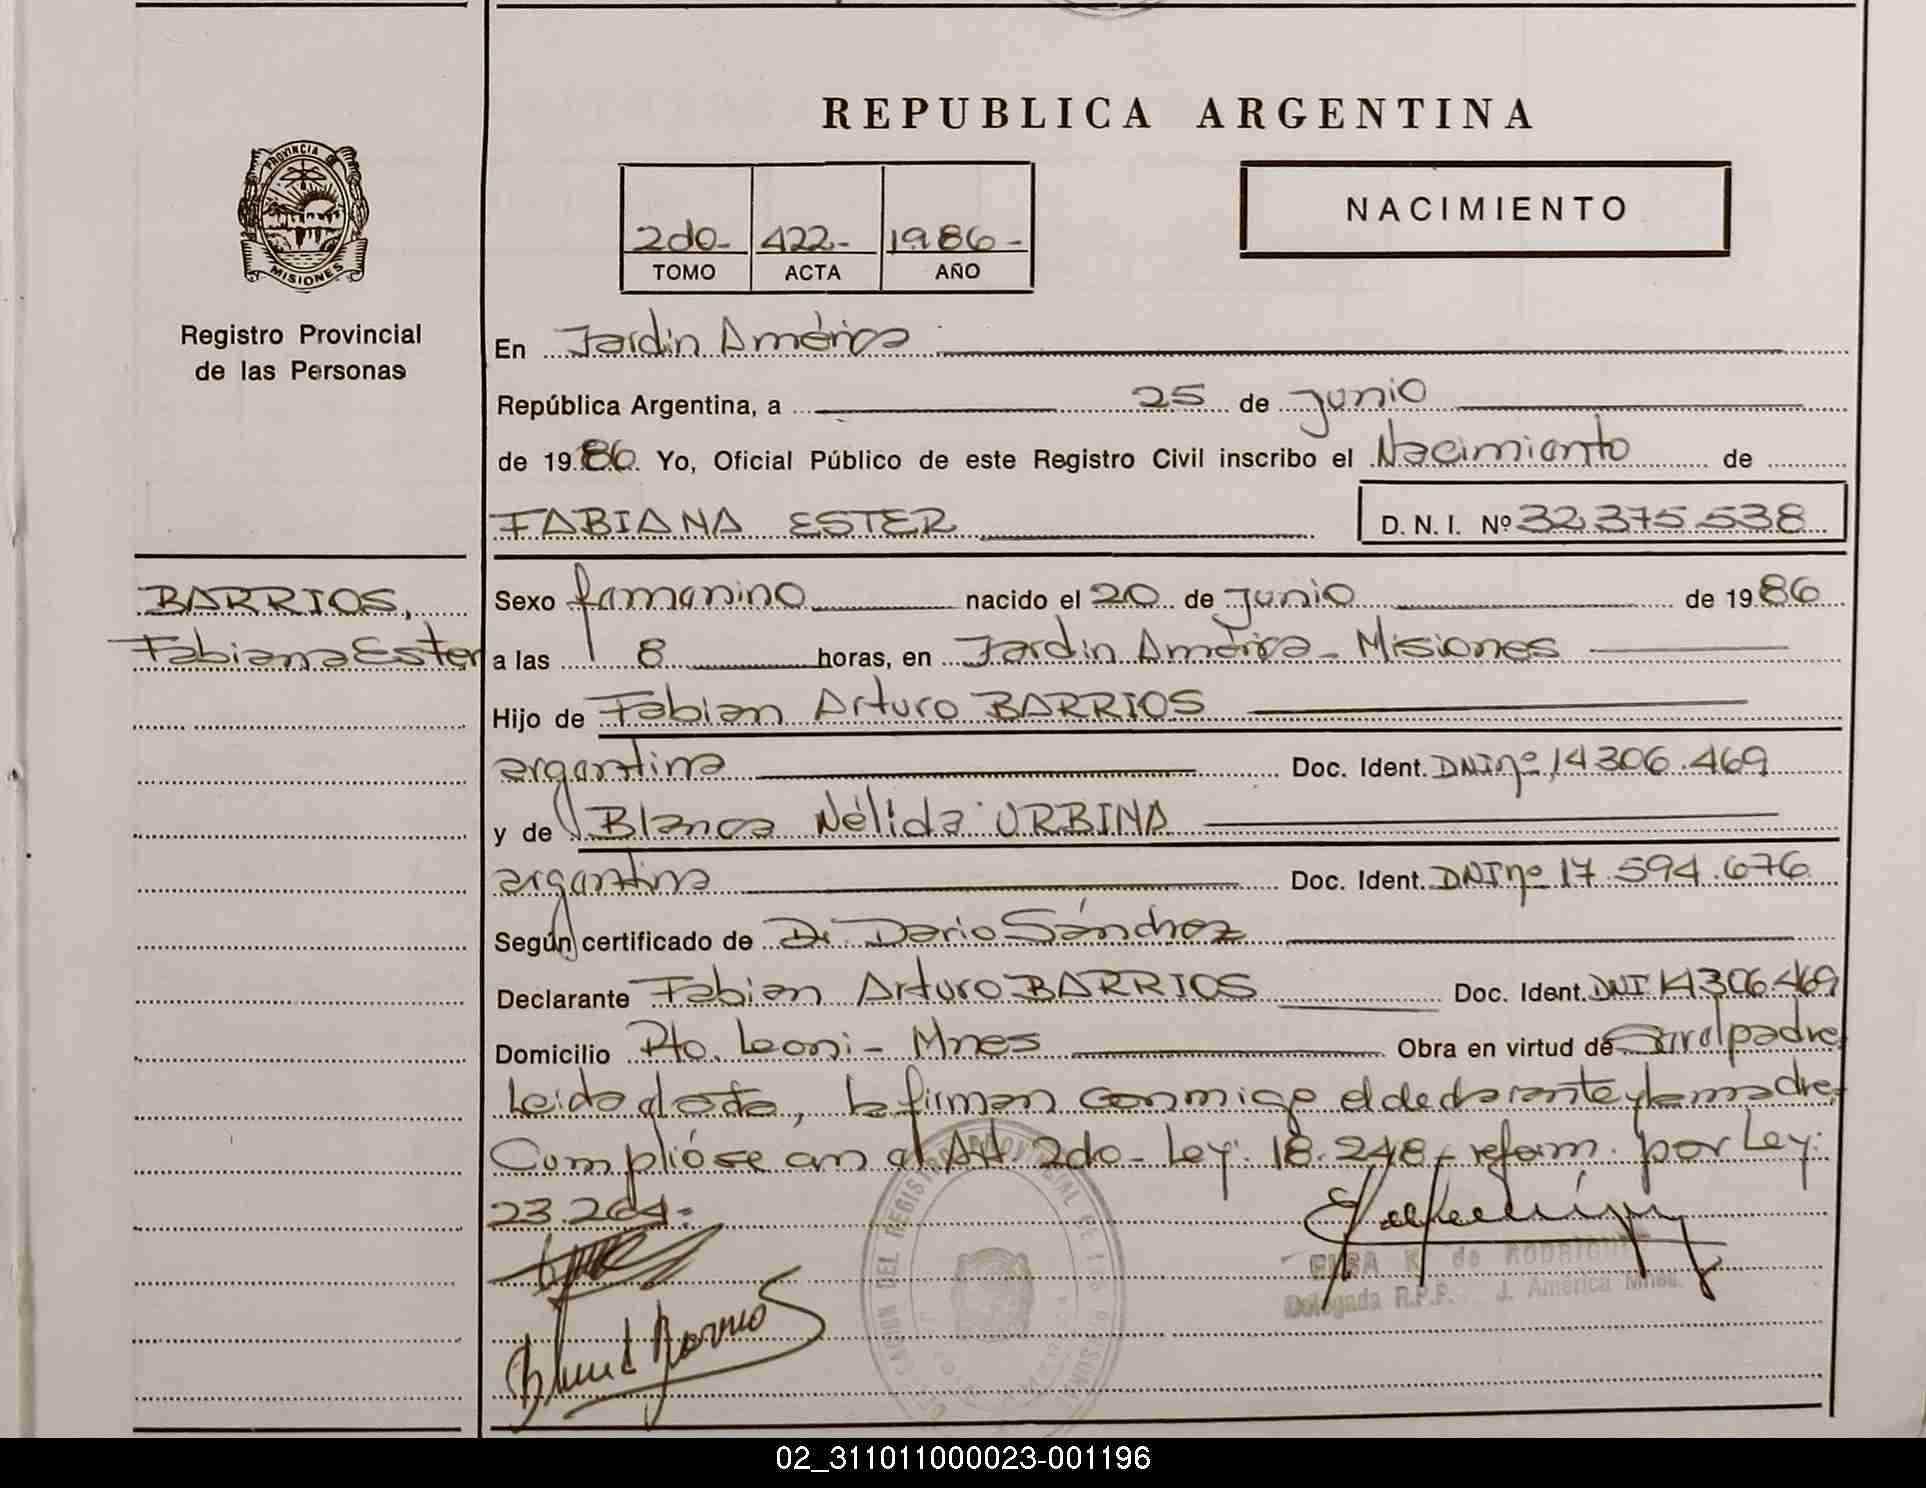 REPUBLICA ARGENTINA
PROVINCIA DE
MISIONES
Registro Provincial
de las Personas
2do- 422- 1986-
TOMO ACTA AÑO
NACIMIENTO
En Jardin América
República Argentina, a 25 de junio
de 1986. Yo, Oficial Público de este Registro Civil inscribo el Nacimiento de
FABIANA ESTER D. N. I. Nº 32.375.538
BARRIOS,
Fabiana Ester
Sexo femenino nacido el 20 de junio de 1986
a las 8 horas, en Jardin América - Misiones
Hijo de Fabian Arturo BARRIOS
argentina Doc. Ident. DNI nº 14.306.469
y de Blanca Nélida URBINA
argentina Doc. Ident. DNI nº 17.594.676
Según certificado de Dr. Dario Sánchez
Declarante Fabian Arturo BARRIOS Doc. Ident. DNI 14306469
Domicilio Pto. Leoni - Mnes Obra en virtud de padre.
Leida el acta, la firman conmigo el declarante y la madre.
Cumplióse en el Art. 2do- Ley: 18.248- reform. por Ley:
23.264.-
ELSA K. de RODRIGUEZ
Delegada R.P.P. J. América Mnes.
02_311011000023-001196